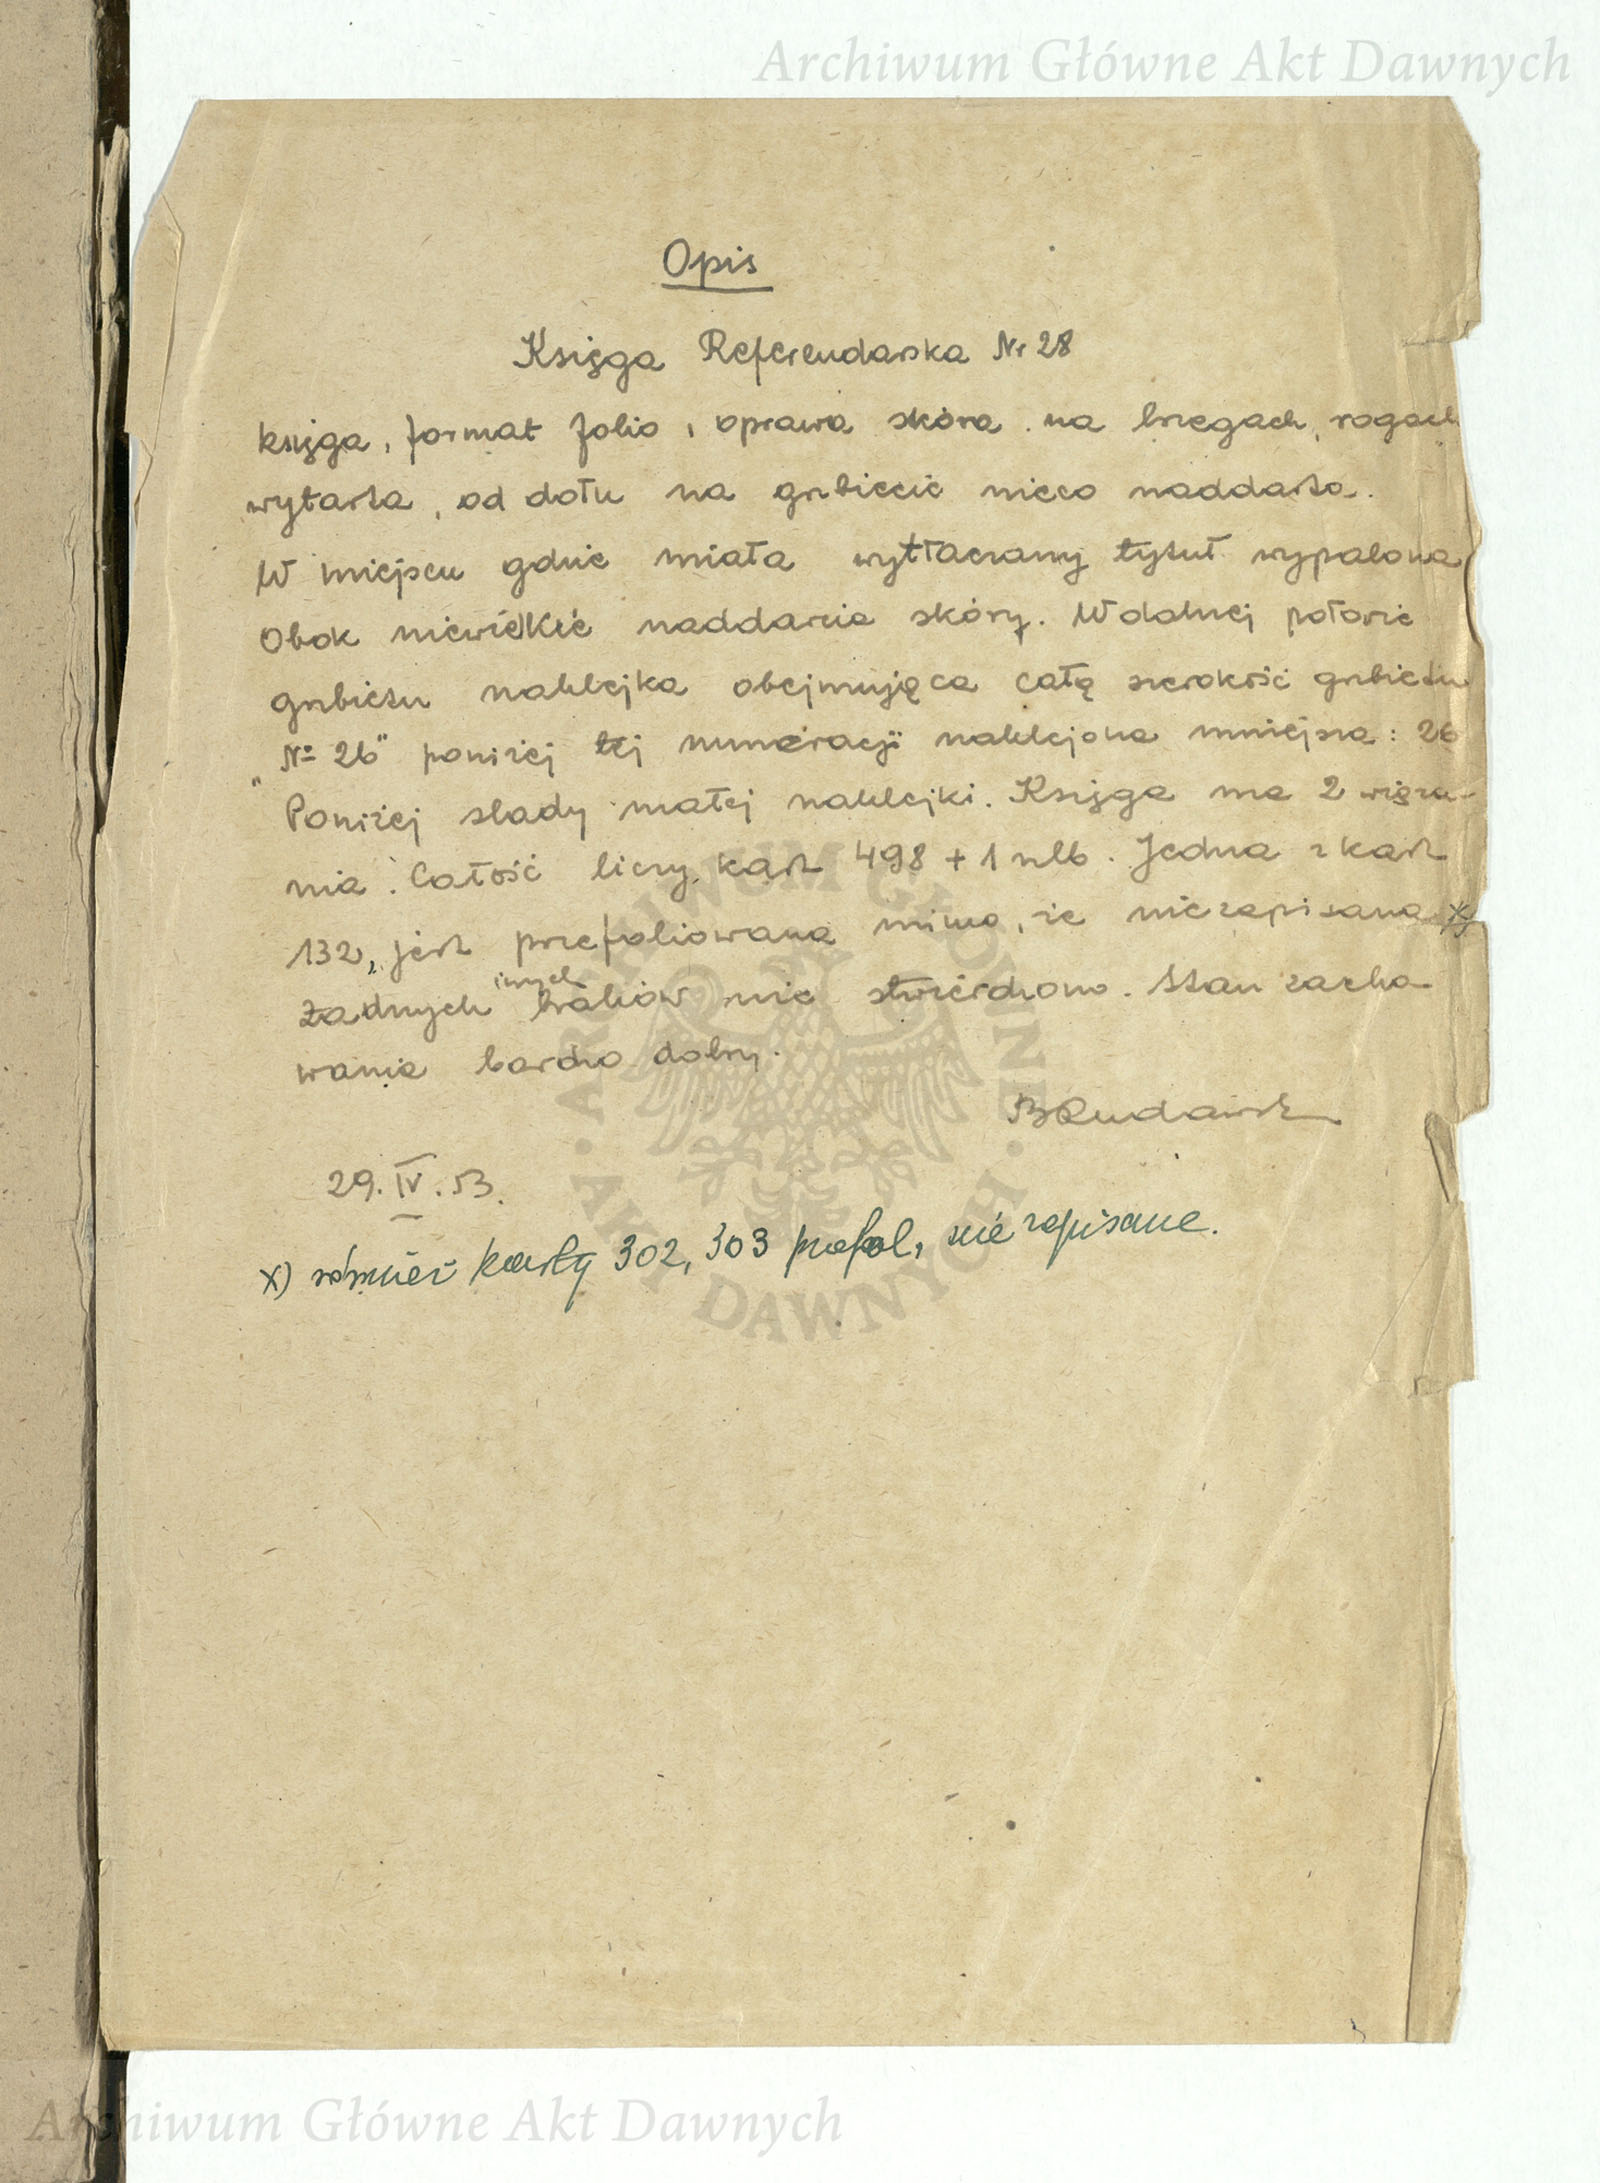 Archiwum Główne Akt Dawnych
Opis
Księga Referendarska Nr 28
księga, format folio, oprawa skóra na brzegach, rogach
wytarta, od dołu na grzbiecie nieco naddarta.
W miejscu gdzie miała wytłaczany tytuł wypalona
Obok niewielkie naddarcie skóry. W dolnej połowie
grzbietu naklejka obejmująca całą szerokość grzbietu
„Nº 26" poniżej tej numeracji naklejona mniejsza: 26
Poniżej ślady małej naklejki. Księga ma 2 wiąza-
nia. Całość liczy kart 498 + 1 nlb. Jedna z kart
132, jest przefoliowana mimo, że niezapisana x)
żadnych innych braków nie stwierdzono. Stan zacho-
wania bardzo dobry.
29. IV. 53.
x) również karty 302, 303 przefol, nie zapisane.
ARCHIWUM GŁÓWNE AKT DAWNYCH
Archiwum Główne Akt Dawnych